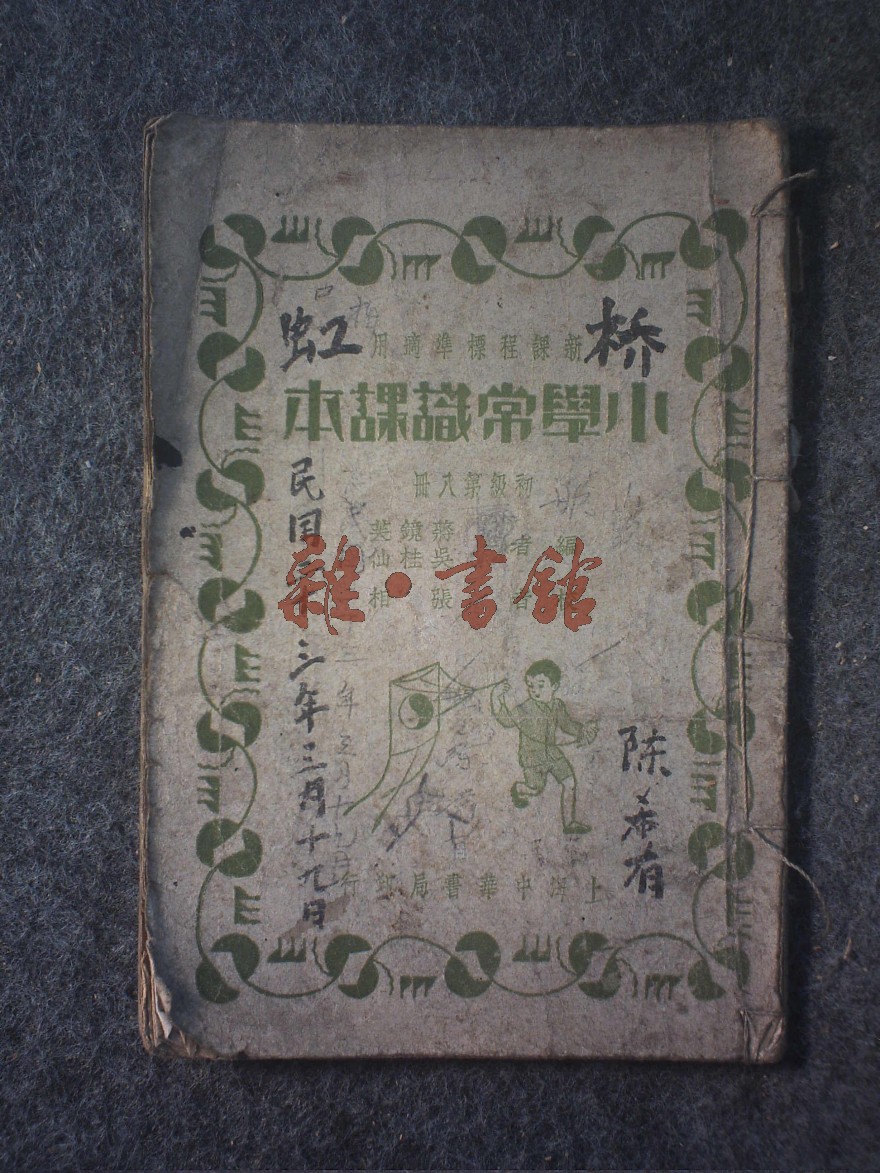 桥虹
新課程標準適用
小學常識課本
初級第八冊
編者 蔣鏡芙
吳桂仙
者 張相
雜·書館
上海中華書局印行
民国三十三年三月十九日
陈希有